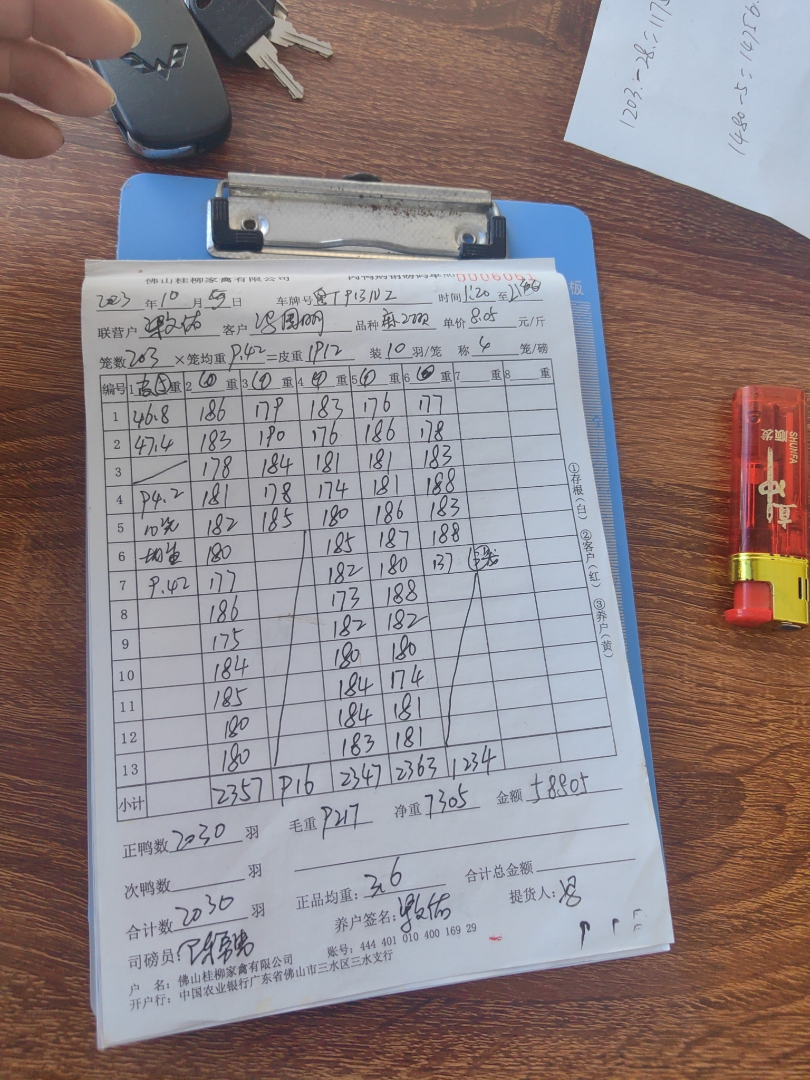 1203.-28.=1175
1480-5=14756.
佛山桂柳家禽有限公司
0006061
2023 年 10 月 日 车牌号 时间 1:20 至
联营户 客户 品种 单价 8.05 元/斤
笼数 203 ×笼均重 9.42 =皮重 1912 装 10 羽/笼 称 4 笼/磅
编号 1 重 2 重 3 重 4 重 5 重 6 重 7 重 8 重
1 46.8 186 179 183 176 177
2 47.4 183 190 176 186 178
3 178 184 181 181 183
4 94.2 181 178 174 181 188
5 10笼 182 185 180 186 183
6 均重 180 185 187 188
7 9.42 177 182 180 137
8 186 173 188
9 175 182 182
10 184 180 180
11 185 184 174
12 180 184 181
13 180 183 181
小计 2357 916 2347 2363 1234
正鸭数 2030 羽 毛重 9217 净重 7305 金额 58805
次鸭数 羽
合计数 2030 羽 正品均重: 3.6 合计总金额
司磅员 养户签名: 提货人:
户 名: 佛山桂柳家禽有限公司 账号: 444 401 010 400 169 29
开户行: 中国农业银行广东省佛山市三水区三水支行
①存根(白) ②客户(红) ③养户(黄)
板
SHUNFA
顺发